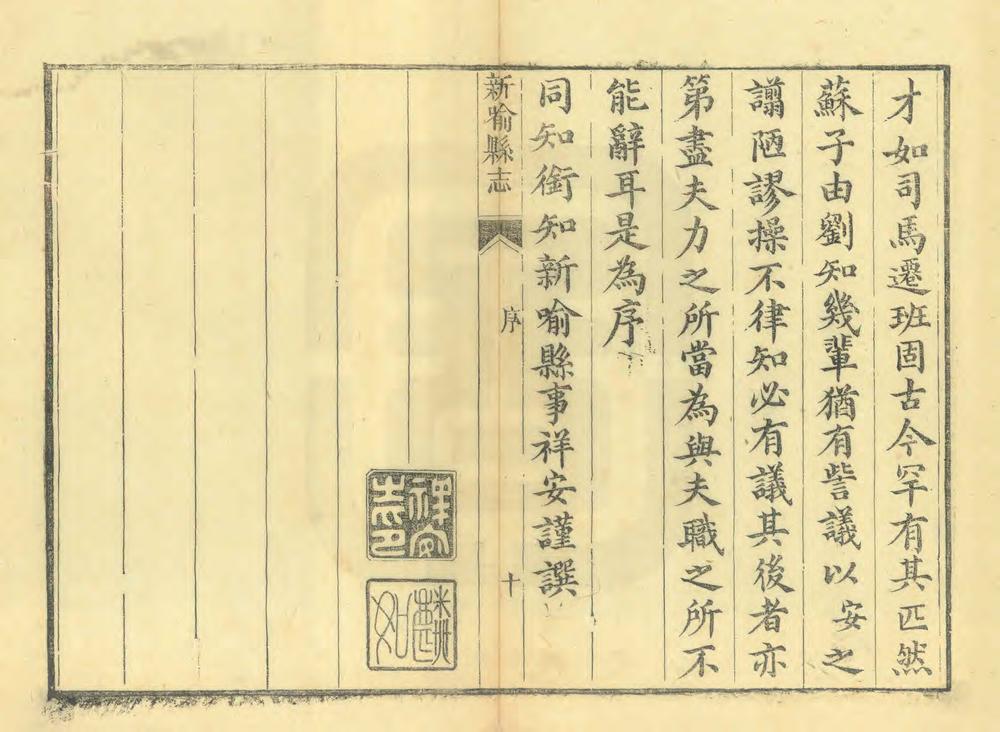 才如司馬遷班固古今罕有其匹然
蘇子由劉知幾輩猶有訾議以安之
謭陋謬操不律知必有議其後者亦
第盡夫力之所當為與夫職之所不
能辭耳是為序
同知銜知新喻縣事祥安謹譔
新喻縣志
序
十
祥安